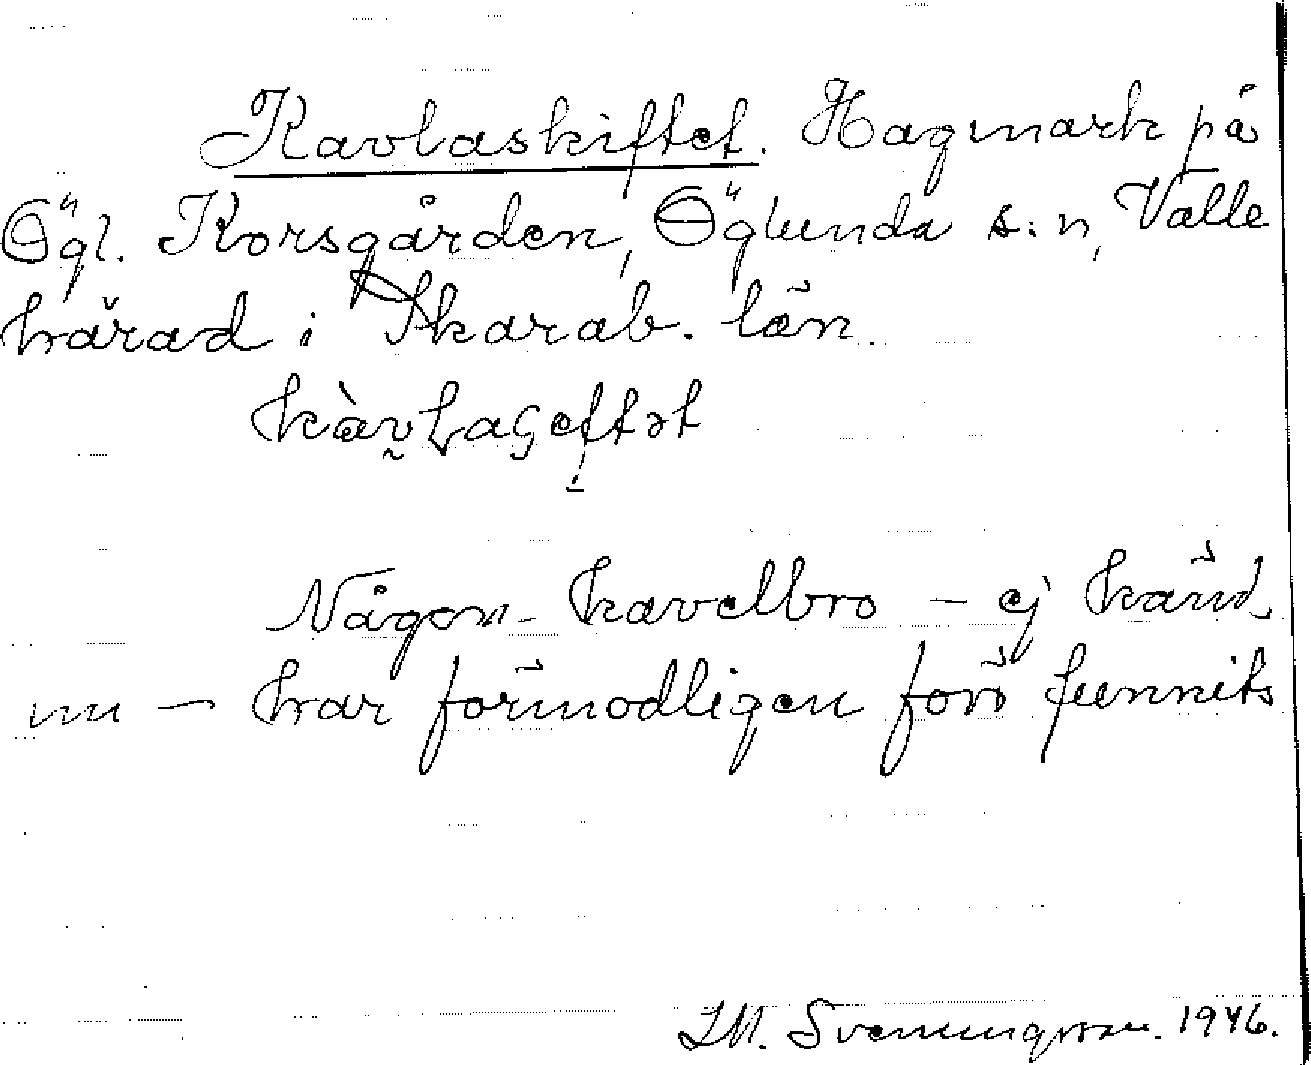 Kavlaskiftet. Hagmark på
Ögl. Korsgården, Öglunda s:n, Valle
härad i Skarab. län.
Någon kavelbro – ej känd
nu – har förmodligen förr funnits
Svenungsson. 1946.